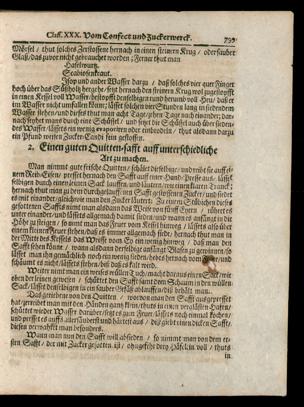 Class. XXX. Vom Confect und Zuckerwerck. 793
Mörsel / thut solches Zerstossene hernach in einen steinern Krug / oder sauber
Glaß / das zuvor nicht gebraucht worden; Ferner thut man
Haselwurtz.
Scabiosenkraut.
Isop und ander Wasser darzu / daß solches vier quer Finger
hoch über das Süßholtz hergehe / setzt hernach den steinern Krug voll zugestopfft
in einen Kessel voll Wasser / bestopfft denselbigen rund herumb voll Heu / daß er
im Wasser nicht umfallen könne; läst solchen vier Stunden lang in siedendem
Wasser stehen / und dieses thut man acht Tage / jeden Tage nach einander; dar-
nach seyhet mans durch eine Schüssel / und setzet die Schüssel auch über sieden-
des Wasser / läst es ein wenig evaporiren oder einbraden / thut alsdann darzu
ein Pfund weissen Zucker-Candi fein gestossen.
2. Einen guten Quitten-safft auff unterschiedliche
Art zu machen.
Man nimmt gute frische Quitten / schälet dieselbige / und reibt sie auff ei-
nem Reib-Eisen / presset hernach den Safft auß einer Hand-Presse auß / lässet
selbigen durch einen leinen Sack lauffen / und läutern / wie einen klaren
hernach thut man zu dem durchgelauffenen Safft gestossenen Zucker / und siedet
es mit einander / gleichwie man den Zucker läutert. Zu einem Stübichen dieses
geläuterten Saffts nimmt man alsdann das Weisse von fünff Eyern / rühret es
unter einander / und lässets allgemach damit sieden
Höhe zu steigen / so nimmt man das Feuer vom Kessel hinweg / lässets also über
einem kleinen Feuer stehen / daß es immer allgemach siede; hernach thut man in
der Mitte des Kessels das Weisse vom Ey ein wenig hinweg / daß man den
Safft sehen kann / wann alsdann derselbige anfängt Blasen zu gewinnen so
läst man ihn gemächlich noch ein wenig stehen / hebt ihn
schäumt es nicht / lässets stehen / biß daß es kalt wird.
Weiter nimmt man ein weisses wüllen Tuch / macht daraus einen Sack wie
oben der leinen gewesen / schüttet den Safft samt dem Schaum in den wüllen
Sack / lässet denselbigen in ein sauber Gläß ablauffen / biß behält man.
Das getriebene von den Quitten / wovon man den Safft ausgepresset
hat / zerreibet man mit den Händen gantz klein / thuts in einen verglästen Hafen /
schüttet wieder Wasser darüber / setzt es zum Feuer / lässets noch einmal kochen /
und presset es auffs allersauberst und härtest aus / diß giebt einen dicken Safft /
diesen verwahret man besonders.
Wann man nun den Safft will absieden / so nimmt man von dem er-
sten Safft / der mit Zucker gesotten ist / ohngefehr drey Häfelein voll / thuts
in